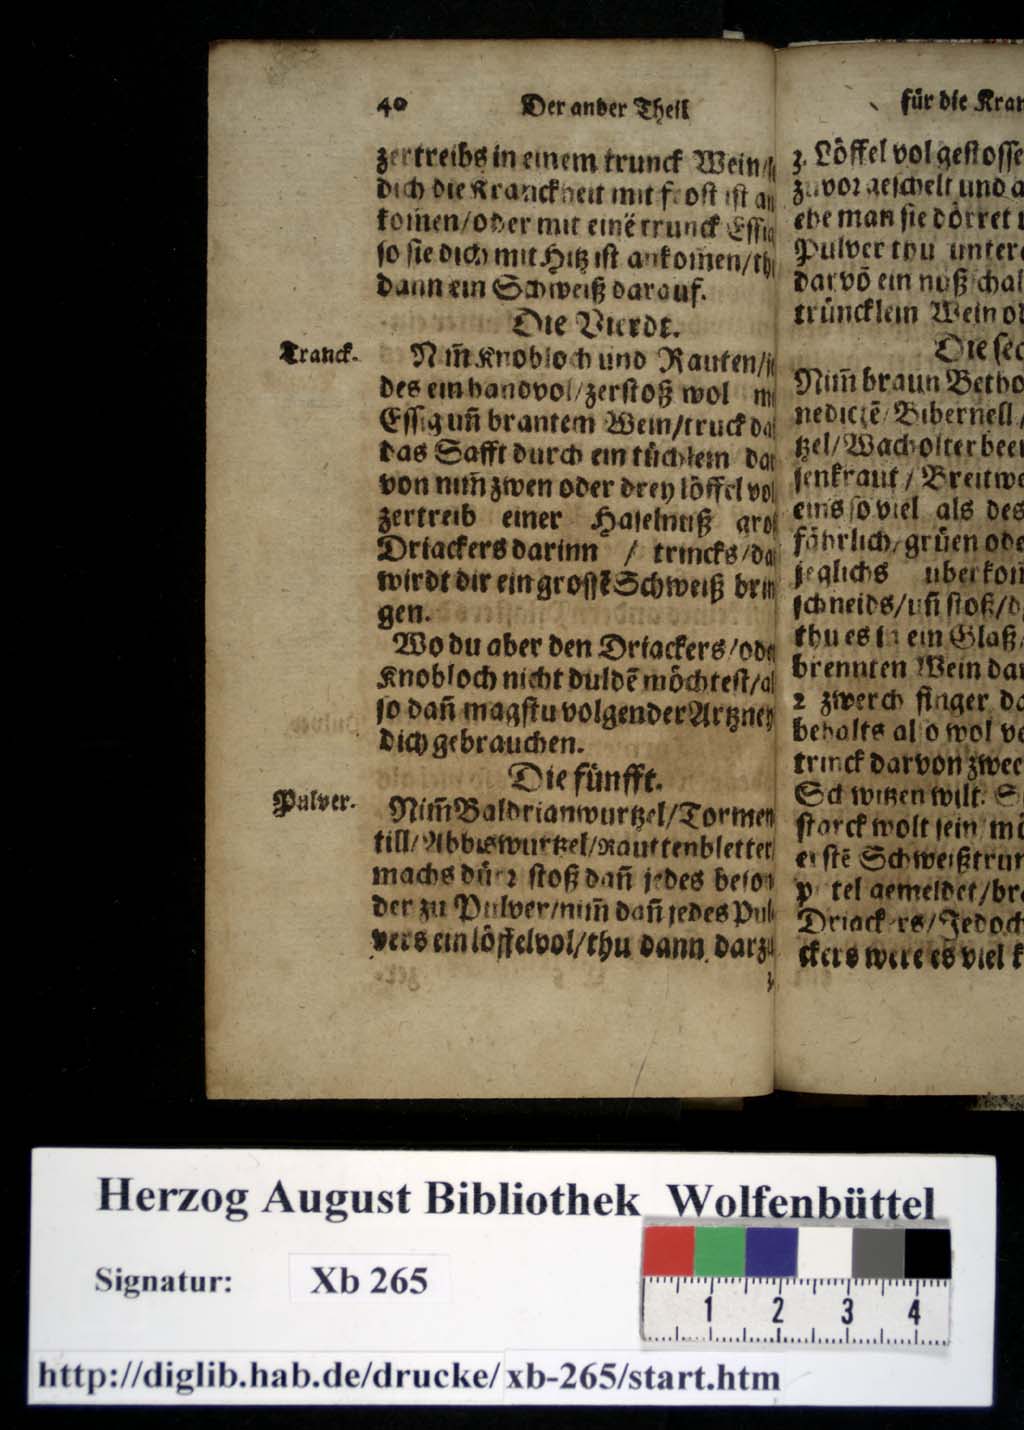 40 Der ander Theil
zertreibs in einem trunck Wein/
dich die Kranckheit mit frost ist
komen/oder mit einē trunck Essig
so sie dich mit Hitz ist ankom̄en/
dann ein Schweiß darauf.
Die Vierdt.
Tranck.
Nim̄ Knobloch und Rauten/
des ein handvol/zerstoß wol
Essig uñ brantem Wein/truck
das Safft durch ein tüchlein dar
von nim̄ zwen oder drey löffel vol
zertreib einer Haselnuß
Driackers darinn / trincks/
wirdt dir ein grossē Schweiß brin
gen.
Wo du aber den Driackers/oder
Knobloch nicht duldē möchtest/al
so dañ magstu volgender Artzney
dich gebrauchen.
Die fünfft.
Pulver.
Nim̄ Baldrianwurtzel/Tormen
till/Abbiswurtzel/Rauttenbletter
machs dürr stoß dañ jedes beson
der zu Pulver/nim̄ dañ jedes Pul
vers ein löffelvol/thu dann darzu
für die Kran
3. Löffel vol gestosse
zuvor geschelt und
ehe man sie dörret
Pulver thu unter
darvō ein nuß schal
trüncklein Wein
Die sec
Nim̄ braun Betho
nedictē/Bibernell/
tzel/Wacholterbeer
senkraut/Breitwe
eins so viel als des
föhrlich/grüen ode
jeglichs uberkom
schneids/uñ stoß/
thu es in ein Glaß/
brennten Wein dar
2 zwerch finger
behalts also wol
trinck darvon zwee
Schwitzen wilt.
starck wolt sein
erstē Schweißtrun
gemeldet/bra
Driackers/Jedoch
ckers were es viel
Herzog August Bibliothek Wolfenbüttel
Signatur: Xb 265
1 2 3 4
http://diglib.hab.de/drucke/xb-265/start.htm